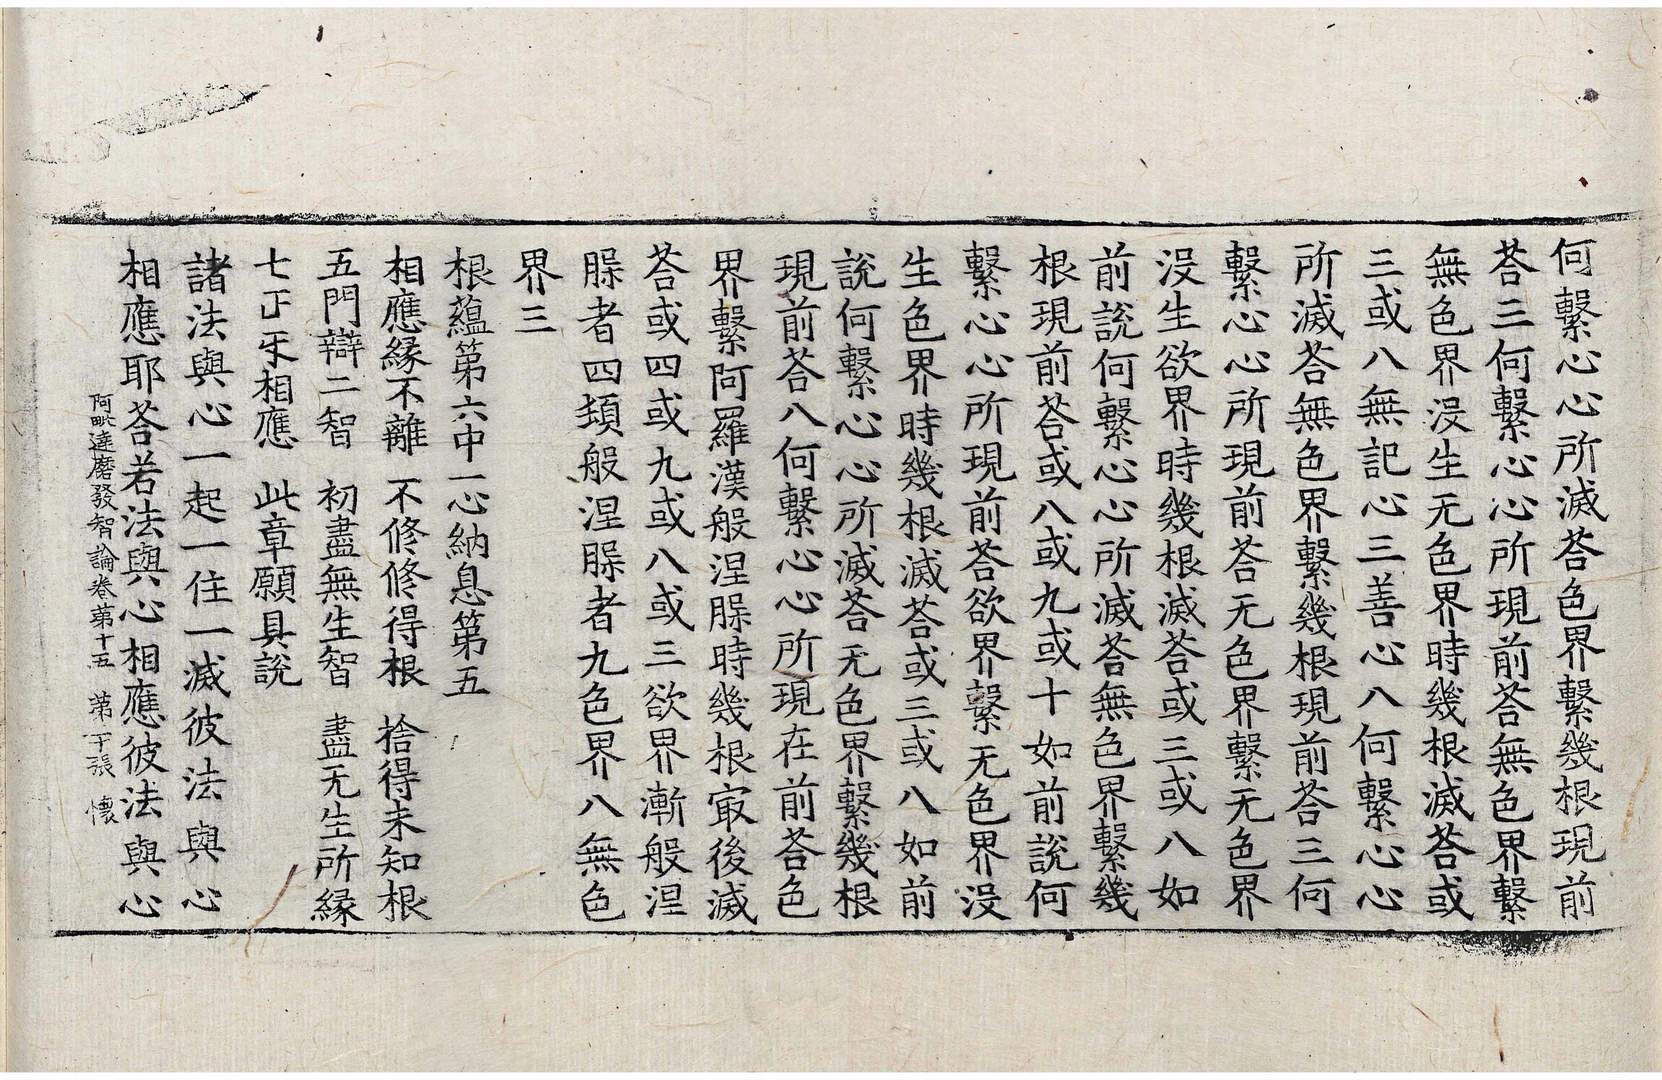 何繫心心所滅荅色界繫幾根現前
荅三何繫心心所現前荅無色界繫
無色界沒生无色界時幾根滅荅或
三或八無記心三善心八何繫心心
所滅荅無色界繫幾根現前荅三何
繫心心所現前荅无色界繫无色界
沒生欲界時幾根滅荅或三或八如
前說何繫心心所滅荅無色界繫幾
根現前荅或八或九或十如前說何
繫心心所現前荅欲界繫无色界沒
生色界時幾根滅荅或三或八如前
說何繫心心所滅荅无色界繫幾根
現前荅八何繫心心所現在前荅色
界繫阿羅漢般涅㬱時幾根㝡後滅
荅或四或九或八或三欲界漸般涅
㬱者四頓般涅㬱者九色界八無色
界三
根蘊第六中一心納息第五
相應緣不離　不修修得根　捨得未知根
五門辯二智　初盡無生智　盡无生所緣
七正𤘽相應　此章願具說
諸法與心一起一住一滅彼法與心
相應耶荅若法與心相應彼法與心
阿毗達磨發智論卷第十五　第二十張　懷